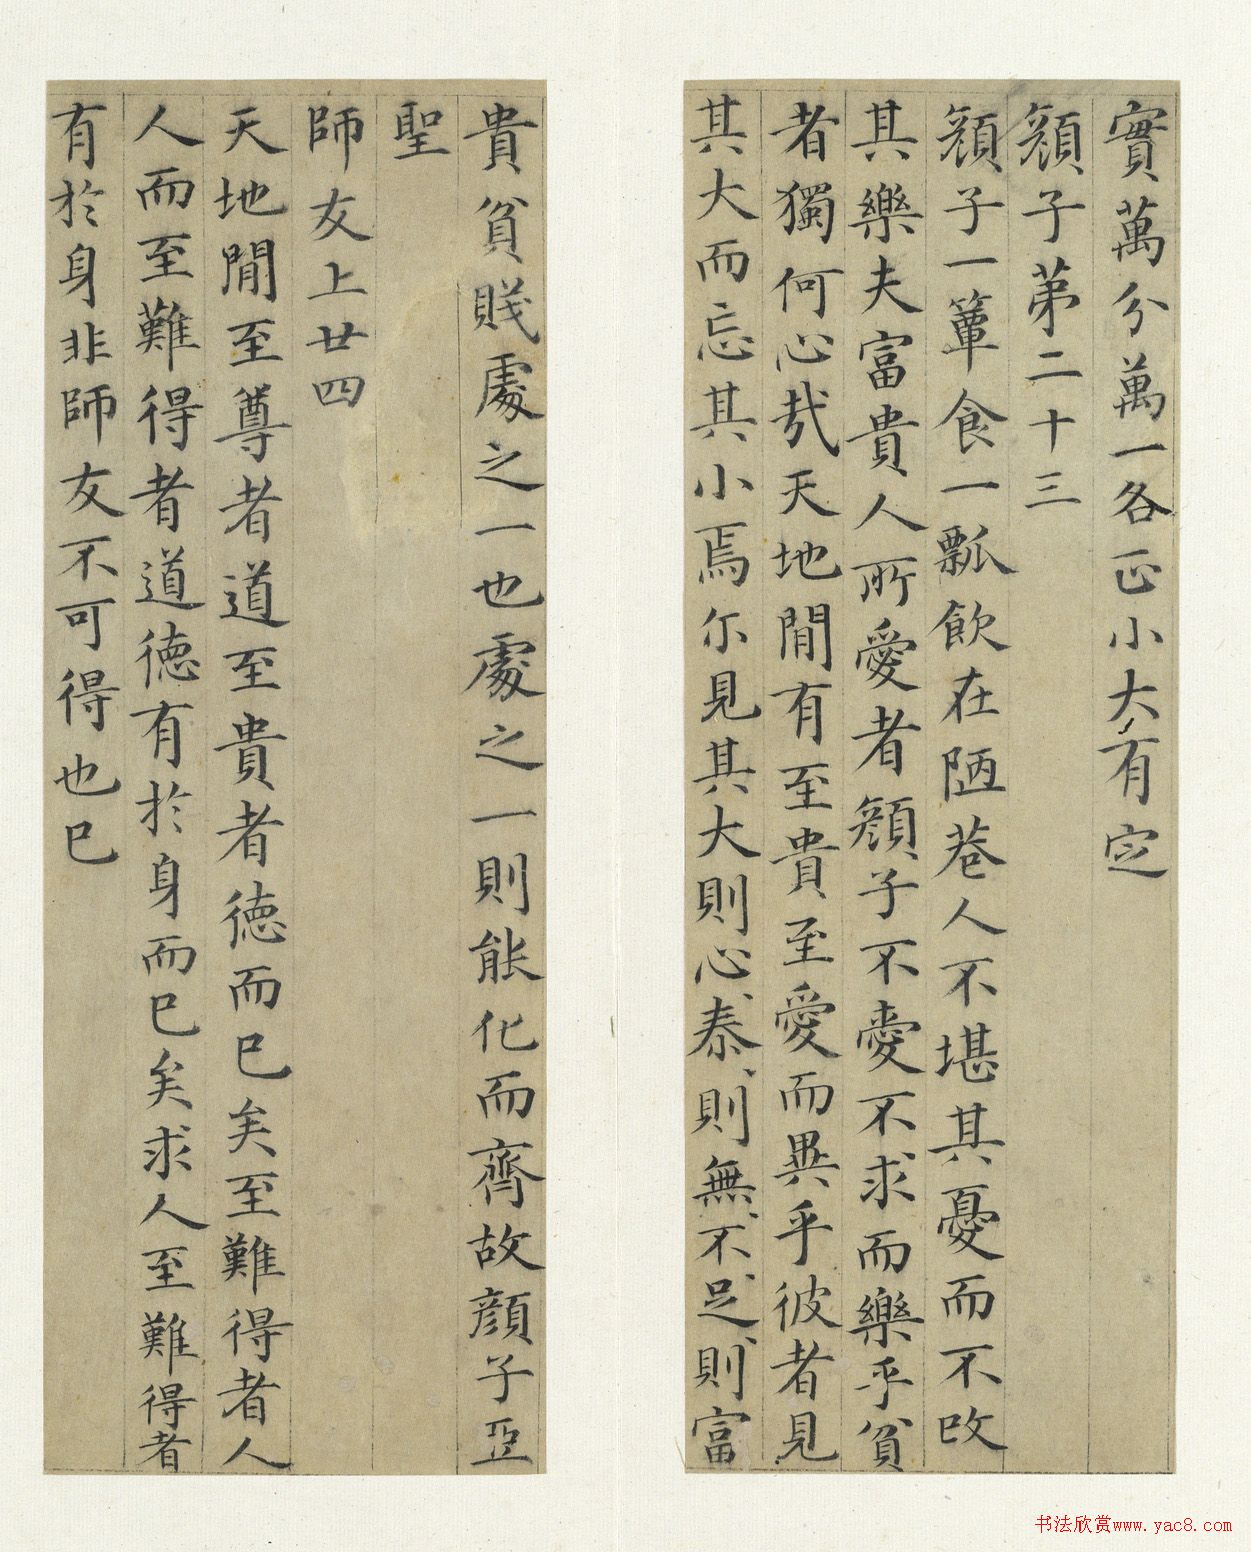 實萬分萬一各正小大有定
顏子苐二十三
顏子一簞食一瓢飲在陋巷人不堪其憂而不改
其樂夫富貴人所愛者顏子不愛不求而樂乎貧
者獨何心哉天地閒有至貴至愛而異乎彼者見
其大而忘其小焉尓見其大則心、泰、則無、不、足、則富
貴貧賤處之一也處之一則能化而齊故顏子亞
聖
師友上廿四
天地閒至尊者道至貴者德而已矣至難得者人
人而至難得者道德有於身而已矣求人至難得者
有於身非師友不可得也已
书法欣赏www.yac8.com